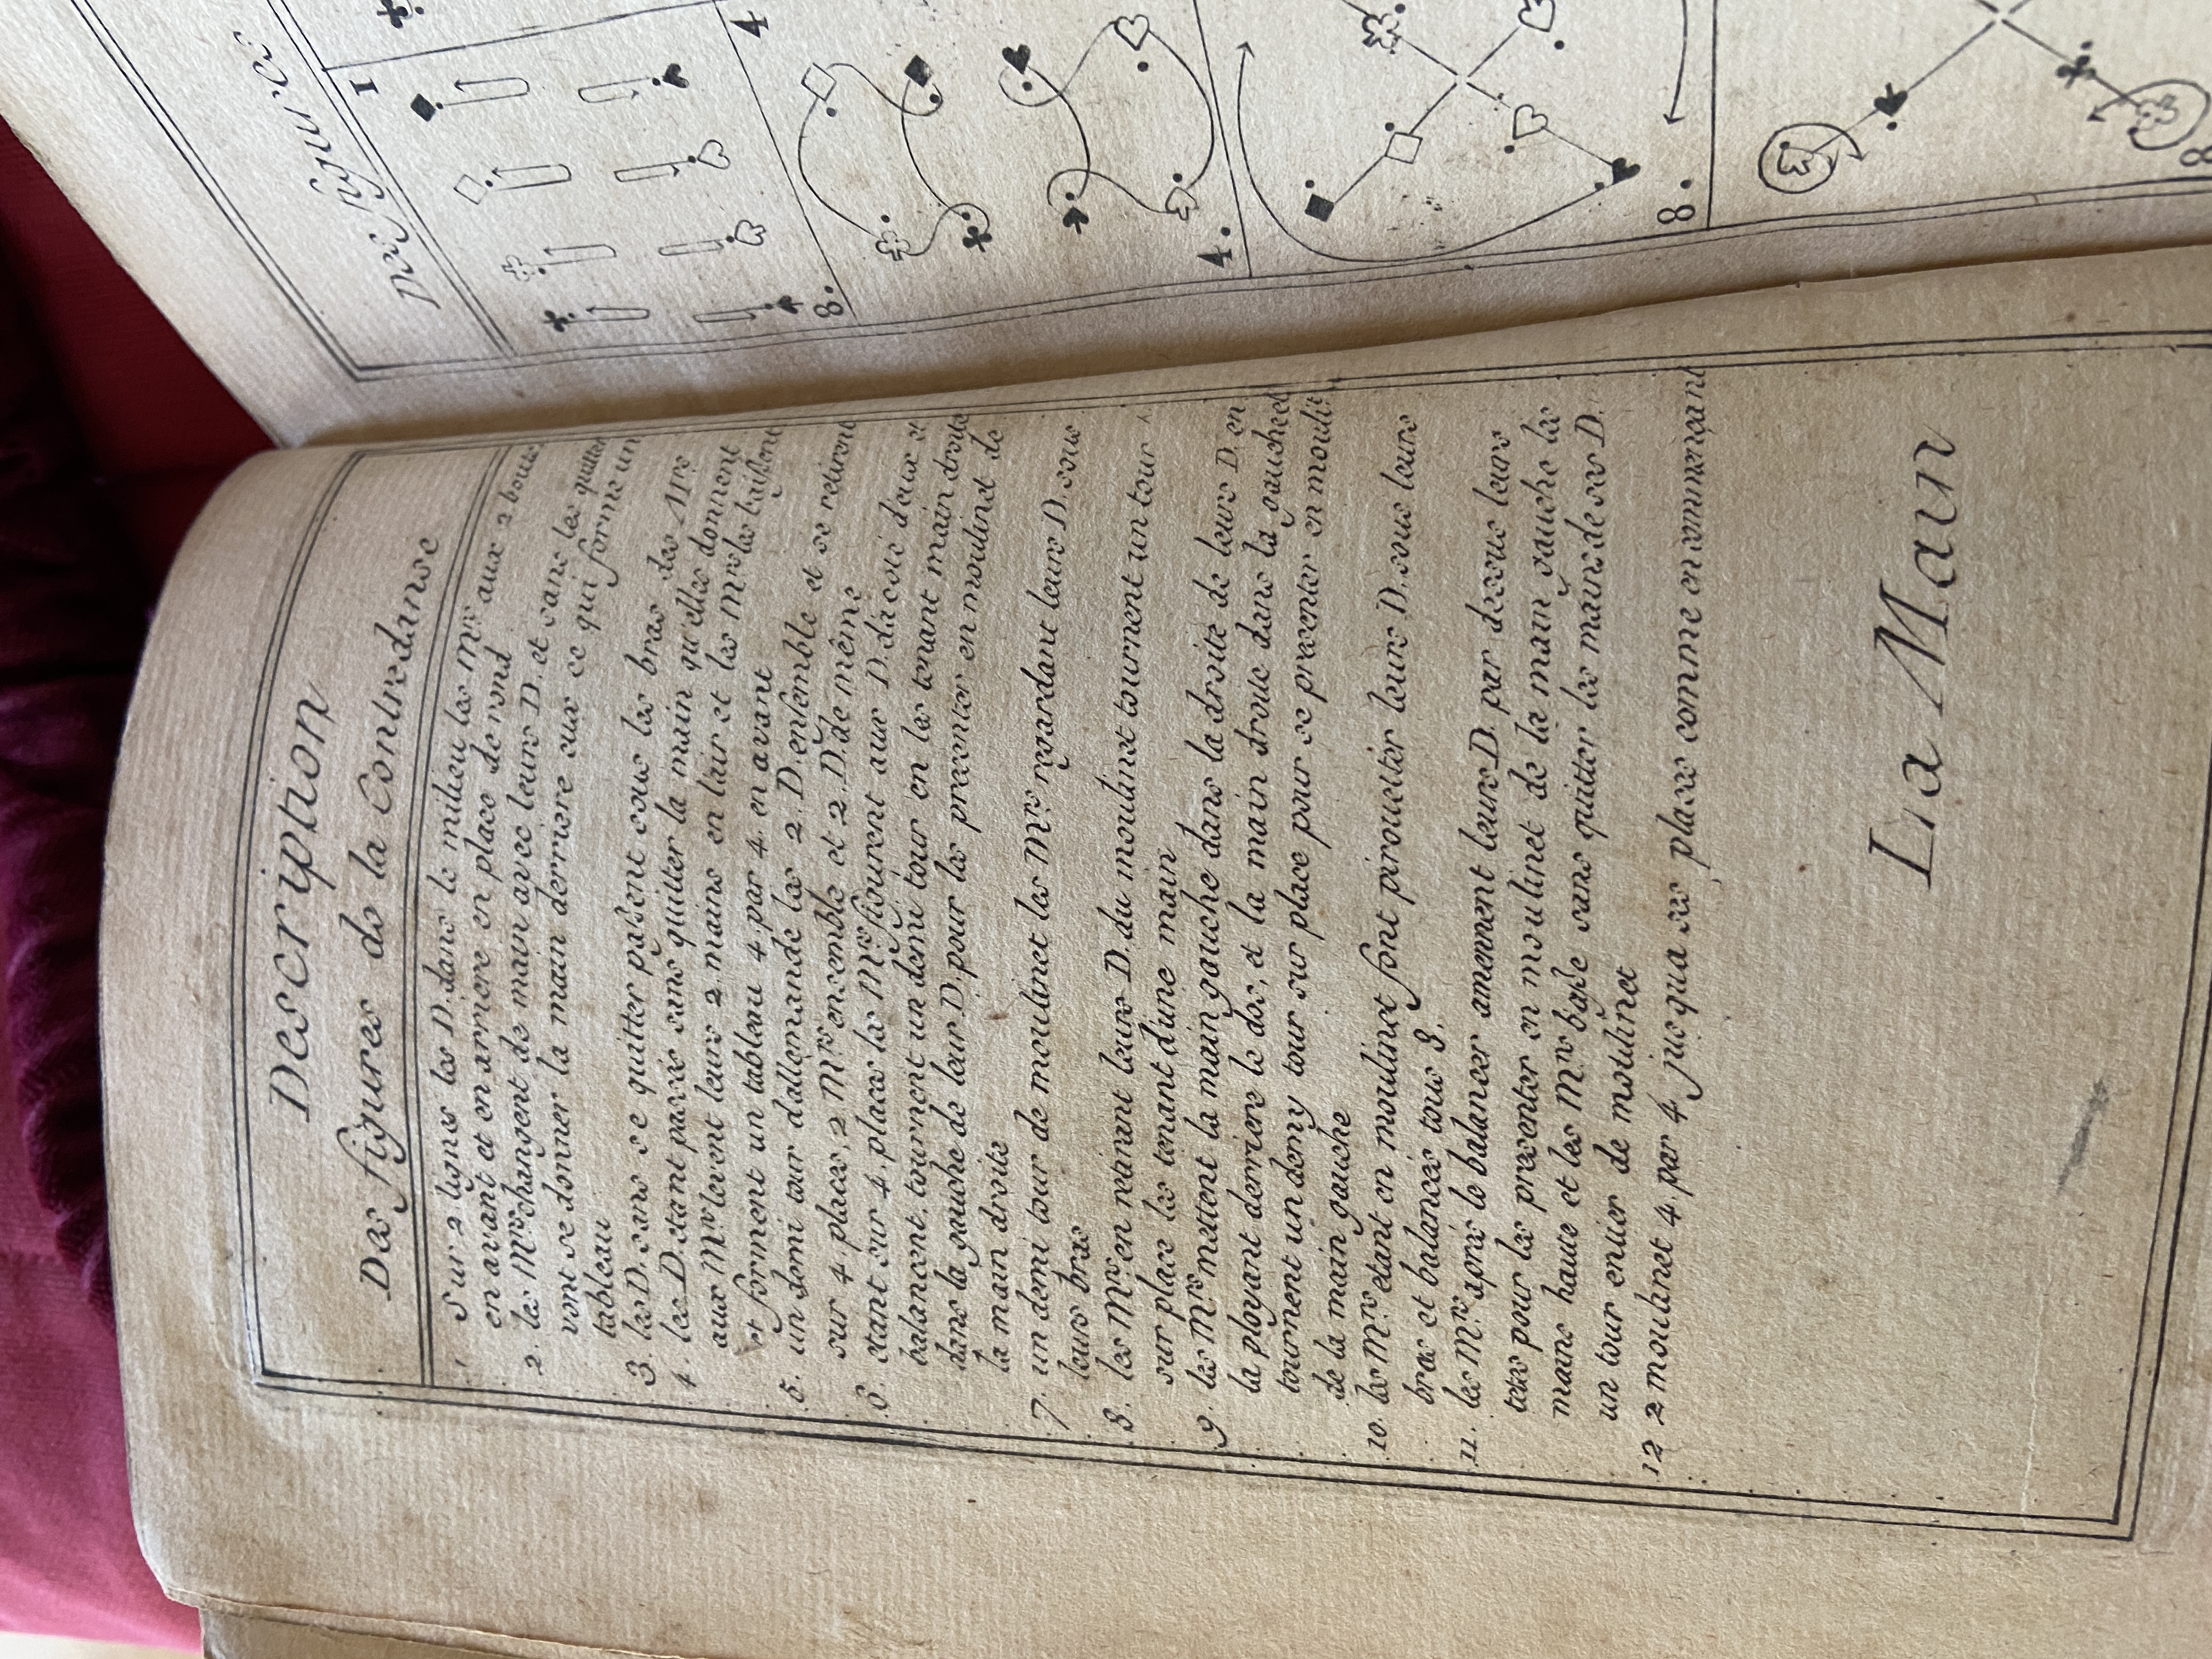 Description
Des figures de la Contredanse
1 Sur 2 lignes les D. dans le milieu les Mrs aux 2 bouts
en avant et en arriere en place de rond
2. les Mrs changent de main avec leurs D. et sans les quitter
vont se donner la main derriere eux ce qui forme un
tableau
3. les D. sans se quitter passent sous les bras des Mrs
4. les D. etant passés sans quitter la main qu'elles donnent
aux Mrs levent leurs 2 mains en l'air et les Mrs les baissent
et forment un tableau 4 par 4 en avant
5. un demi tour d'allemande les 2. D. ensemble et se retirent
sur 4 places, 2 Mrs ensemble et 2. D. de même
6. etant sur 4. places les Mrs figurent aux D. d'a coté d'eux et
balancent, tournent un demi tour en les tenant main droite
dans la gauche de leur D. pour les presenter en moulinet de
la main droite
7. un demi tour de moulinet les Mrs regardant leurs D. sous
leurs bras
8. les Mrs en retenant leurs D. du moulinet tournent un tour
sur place les tenant d'une main
9. les Mrs mettent la main gauche dans la droite de leurs D. en
la ployant derriere le dos, et la main droite dans la gauche et
tournent un demy tour sur place pour se presenter en mouli
de la main gauche
10. les Mrs etant en moulinet font pirouetter leurs D. sous leurs
bras et balancés tous 8.
11. les Mrs après le balancer amennent leurs D. par dessus leurs
tetes pour les presenter en moulinet de la main gauche les
mains haute et les Mrs basse sans quitter les mains de ses D.
un tour entier de moulinet
12 2 moulinet 4. par 4. jusqua ses places comme en commençant
La Main
des figures
1
8.
4
4.
8.
8